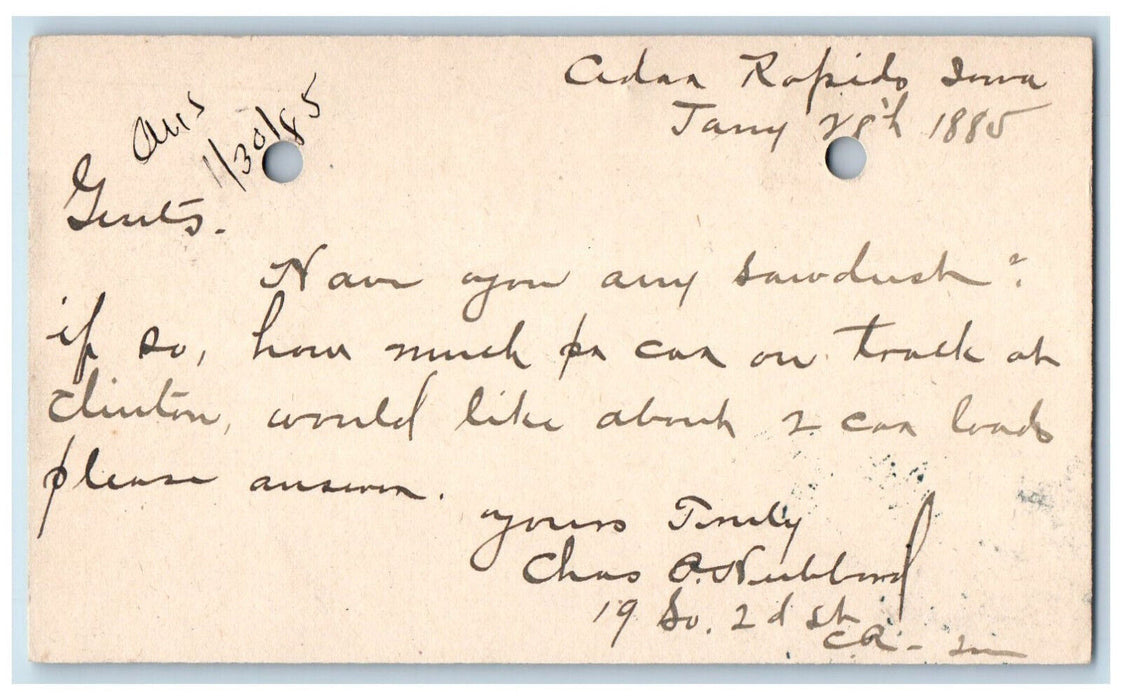 Cedar Rapids Iowa
Jany 28th 1885
Ans
1/30/85
Gents.
Have you any sawdust?
if so, how much pr car on track at
Clinton, would like about 2 car loads
please answer.
yours Truly
Chas A. Hubbard
19 So. 2d St
CR - Ia